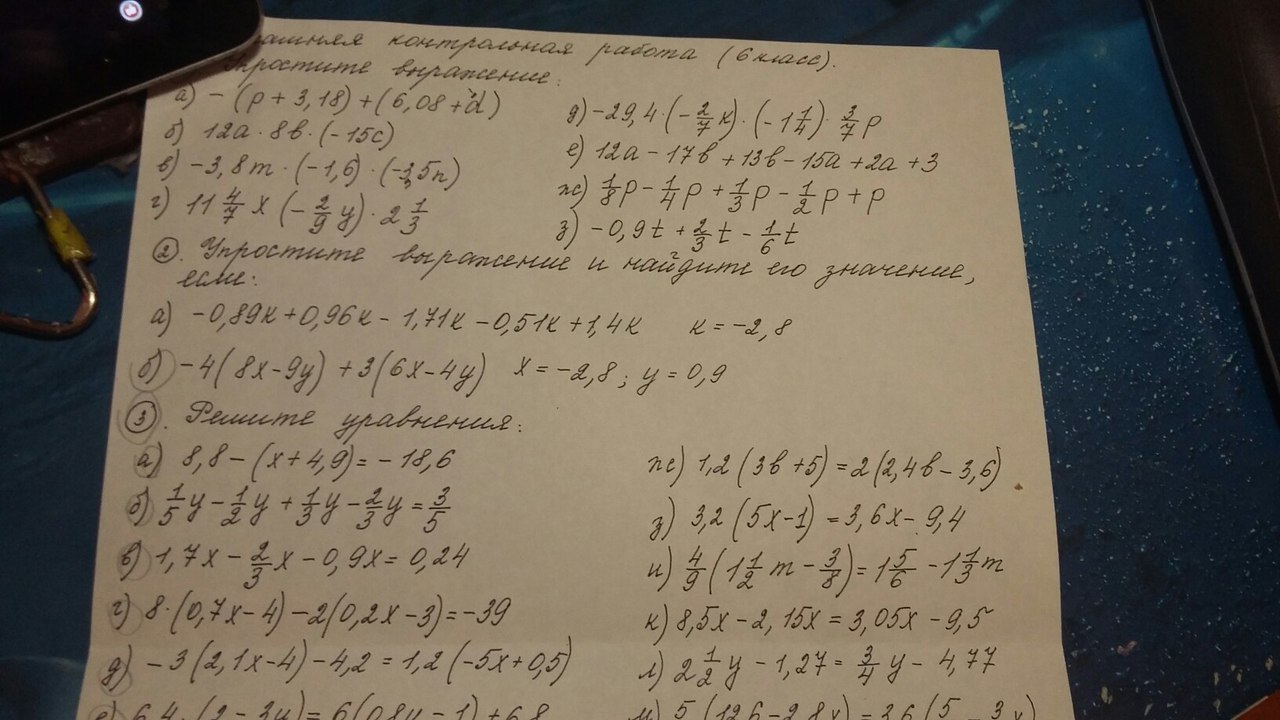 контрольная работа (6 класс).
выражение:
а) -(p + 3,18) + (6,08 + d)
б) 12a · 8b · (-15c)
в) -3,8m · (-1,6) · (-5n)
г) 11 4/7 x (-2/9 y) · 2 1/3
д) -29,4 · (-2/7 k) · (-1 1/4) · 3/7 p
е) 12a - 17b + 13b - 15a + 2a + 3
ж) 1/8 p - 1/4 p + 1/3 p - 1/2 p + p
з) -0,9t + 2/3 t - 1/6 t
2. Упростите выражение и найдите его значение,
если:
а) -0,89k + 0,96k - 1,71k - 0,51k + 1,4k k = -2,8
б) -4(8x - 9y) + 3(6x - 4y) x = -2,8; y = 0,9
3. Решите уравнения:
а) 8,8 - (x + 4,9) = -18,6
б) 1/5 y - 1/2 y + 1/3 y - 2/3 y = 3/5
в) 1,7x - 2/3 x - 0,9x = 0,24
г) 8 · (0,7x - 4) - 2(0,2x - 3) = -39
д) -3(2,1x - 4) - 4,2 = 1,2(-5x + 0,5)
ж) 1,2(3b + 5) = 2(2,4b - 3,6)
з) 3,2(5x - 1) = 3,6x - 9,4
и) 4/9 (1 1/2 m - 3/8) = 1 5/6 - 1 1/3 m
к) 8,5x - 2,15x = 3,05x - 9,5
л) 2 1/2 y - 1,27 = 3/4 y - 4,77